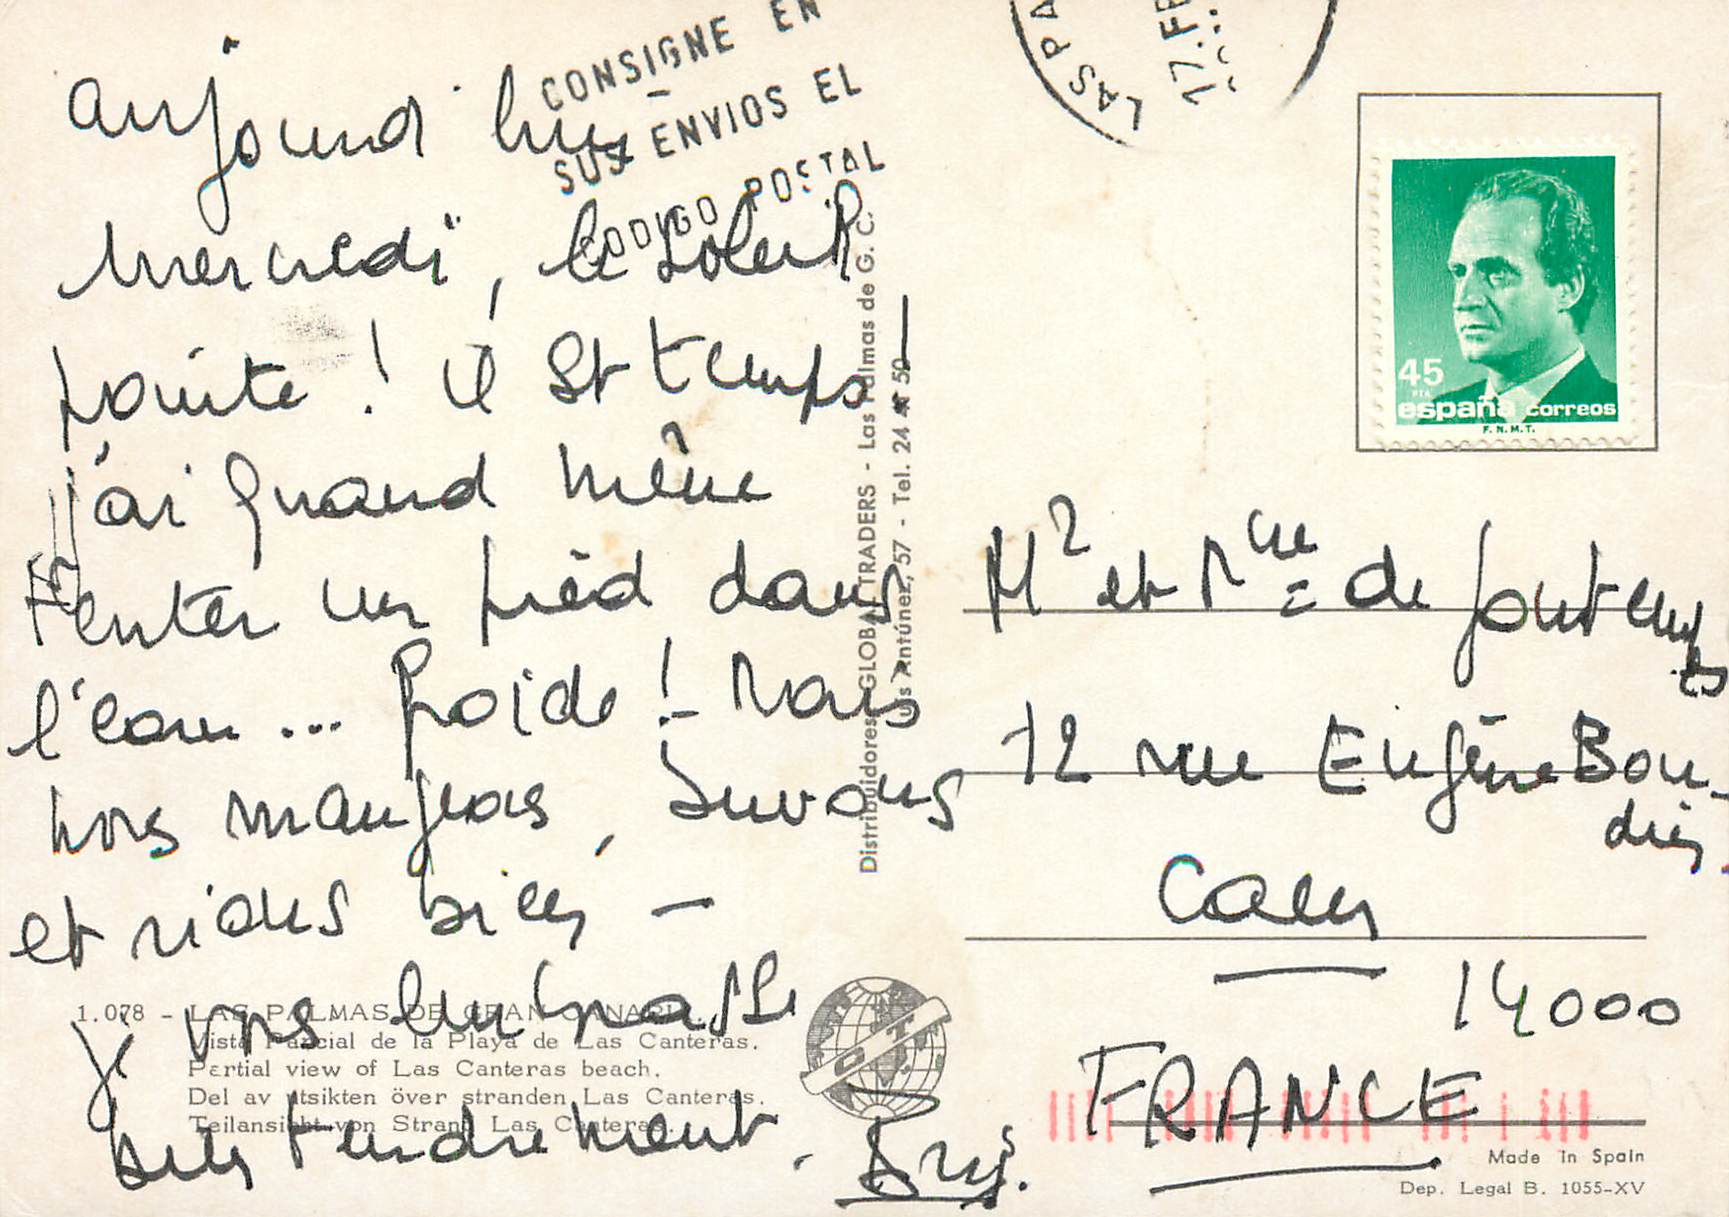 CONSIGNE EN
SUS ENVIOS EL
CODIGO POSTAL
aujourd'hui
mercredi, le soleil
pointe ! il est temps –
j'ai quand même
tenter un pied dans
l'eau ... froide ! – Mais
nous mangeons, buvons
et rions bien –
je vous embrasse
bien tendrement.
1.078 - LAS PALMAS DE GRAN CANARIA.
Vista Parcial de la Playa de Las Canteras.
Partial view of Las Canteras beach.
Del av utsikten över stranden Las Canteras.
Teilansicht von Strand Las Canteras.
Distribuidores: GLOBAL TRADERS - Las Palmas de G. C.
Antúnez, 57 - Tel. 24 50
LAS PA
17. FE
45
PTA
españa correos
F.N.M.T.
Mr et Mme de
12 rue Eugène Bou-
din
Caen
14000
FRANCE
Made in Spain
Dep. Legal B. 1055-XV